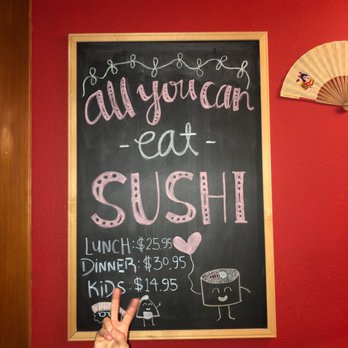 all you can
-eat-
SUSHI
LUNCH: $25.95
DINNER: $30.95
KIDS: $14.95